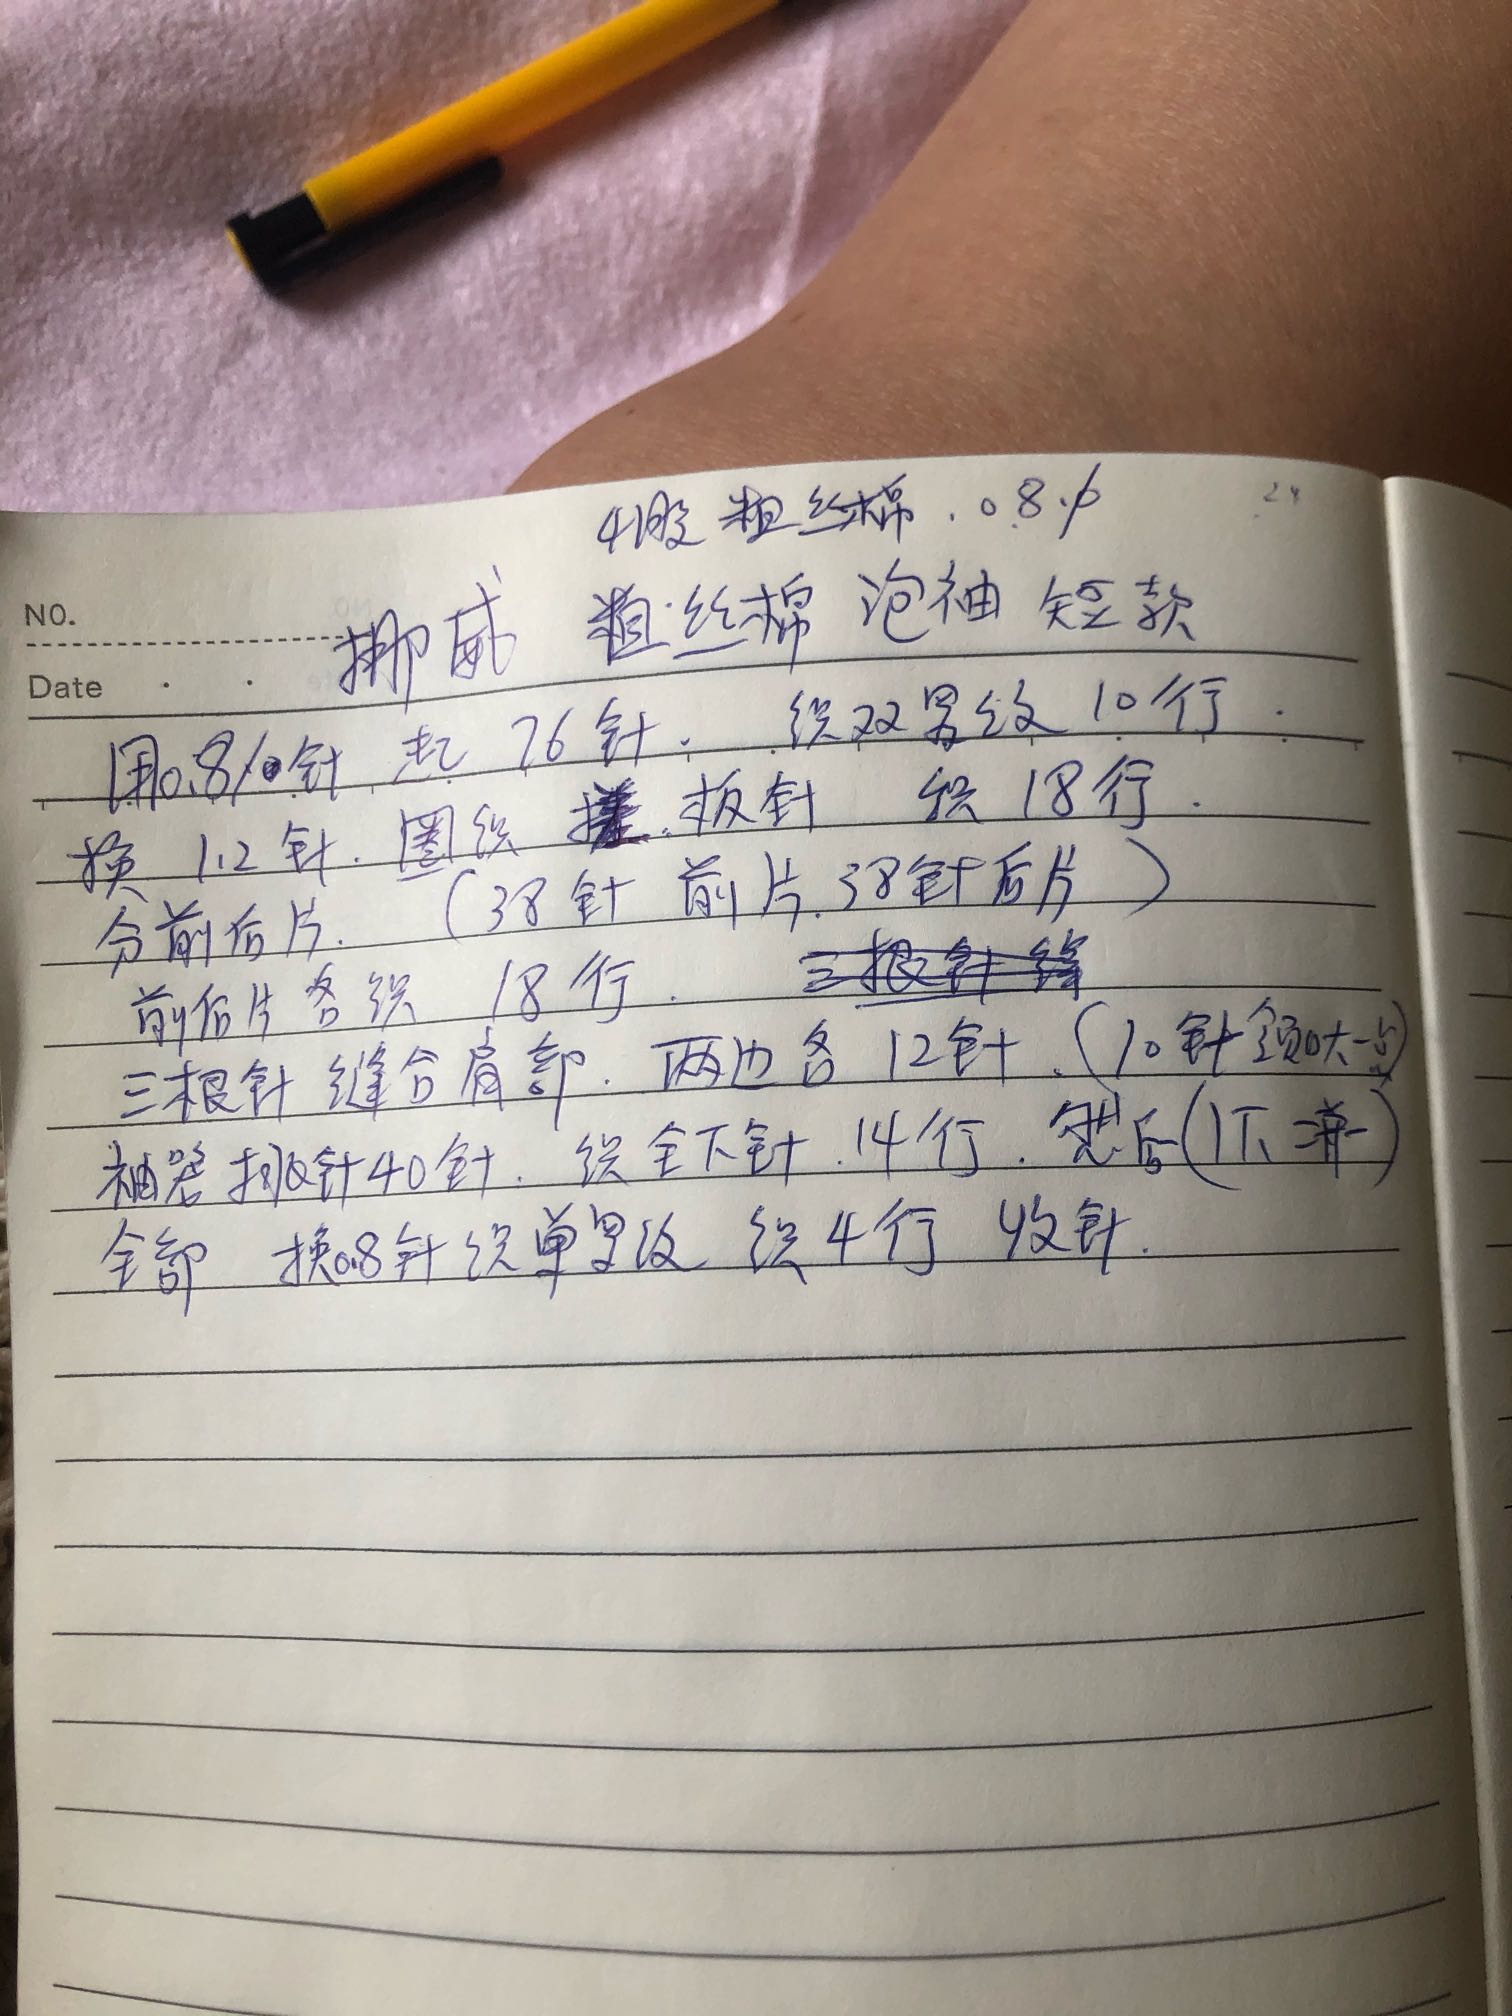 4股粗丝棉.0.8.
NO.
挪威 粗丝棉 泡袖 短款
Date
用0.8/0针 起 76针. 织双罗纹 10行.
换 1.2针.圈织 板针 织 18行.
分前后片. (38针 前片.38针后片)
前后片各织 18行. 三根针缝
三根针 缝合肩部.两边各 12针.(10针领口大一点)
袖笼挑针40针. 织全下针.14行.然后(1下 二并一)
全部 换0.8针织单罗纹 织4行 收针.